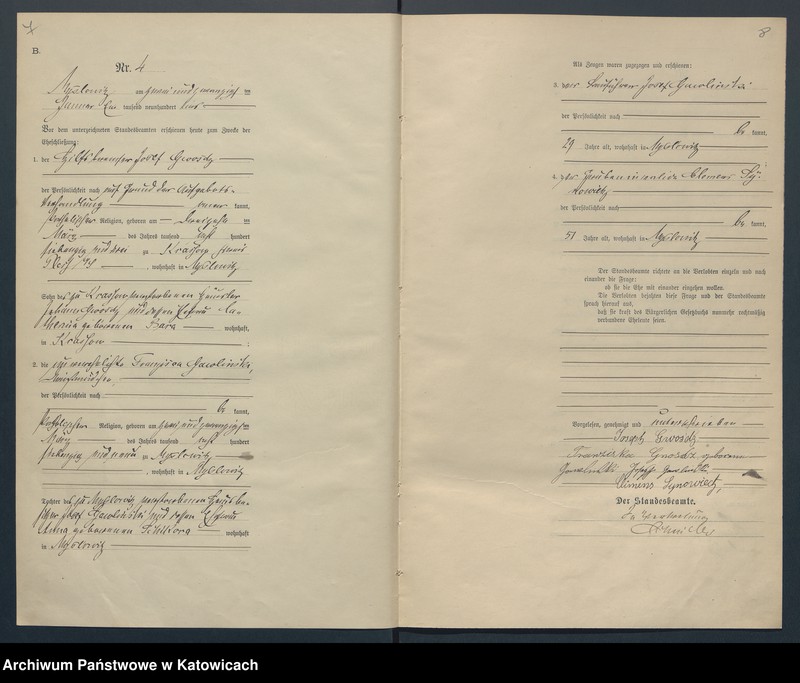 7
B.
Nr. 4
Myslowitz am zwei und zwanzigsten
Januar Ein tausend neunhundert
Vor dem unterzeichneten Standesbeamten erschienen heute zum Zwecke der
Eheschließung:
1. der Josef Gwosdz
der Persönlichkeit nach auf Grund der Aufgebots-
verhandlung kannt,
katholischer Religion, geboren am dreizehnten
März des Jahres tausend acht hundert
siebenzig und drei zu Krassow
, wohnhaft in Myslowitz
Sohn des zu Krassow verstorbenen Häusler
Johann Gwosdz und dessen Ehefrau Ka-
tharina geborenen Bara wohnhaft,
in Krassow ;
2. die unverehelichte Franziska Gacolinski,
der Persönlichkeit nach
be kannt,
katholischer Religion, geboren am zwei und zwanzigsten
März des Jahres tausend acht hundert
siebenzig und neun zu Myslowitz
, wohnhaft in Myslowitz
Tochter des zu Myslowitz verstorbenen
Josef Gacolinski und dessen Ehefrau
Anna geborenen Schikora wohnhaft
in Myslowitz
8
Als Zeugen waren zugezogen und erschienen:
3. der Josef Gacolinski
der Persönlichkeit nach
be kannt,
29 Jahre alt, wohnhaft in Myslowitz
4. der Grubeninvalide Clemens Sy-
nowietz
der Persönlichkeit nach
be kannt,
51 Jahre alt, wohnhaft in Myslowitz
Der Standesbeamte richtete an die Verlobten einzeln und nach
einander die Frage:
ob sie die Ehe mit einander eingehen wollen.
Die Verlobten bejahten diese Frage und der Standesbeamte
sprach hierauf aus,
daß sie kraft des Bürgerlichen Gesetzbuchs nunmehr rechtmäßig
verbundene Eheleute seien.
Vorgelesen, genehmigt und unterschrieben
Joseph Gwosdz
Franziska Gwosdz geborene
Gacolinski Josef Gacolinski
Klimens Synowiec
Der Standesbeamte.
In Vertretung
Archiwum Państwowe w Katowicach